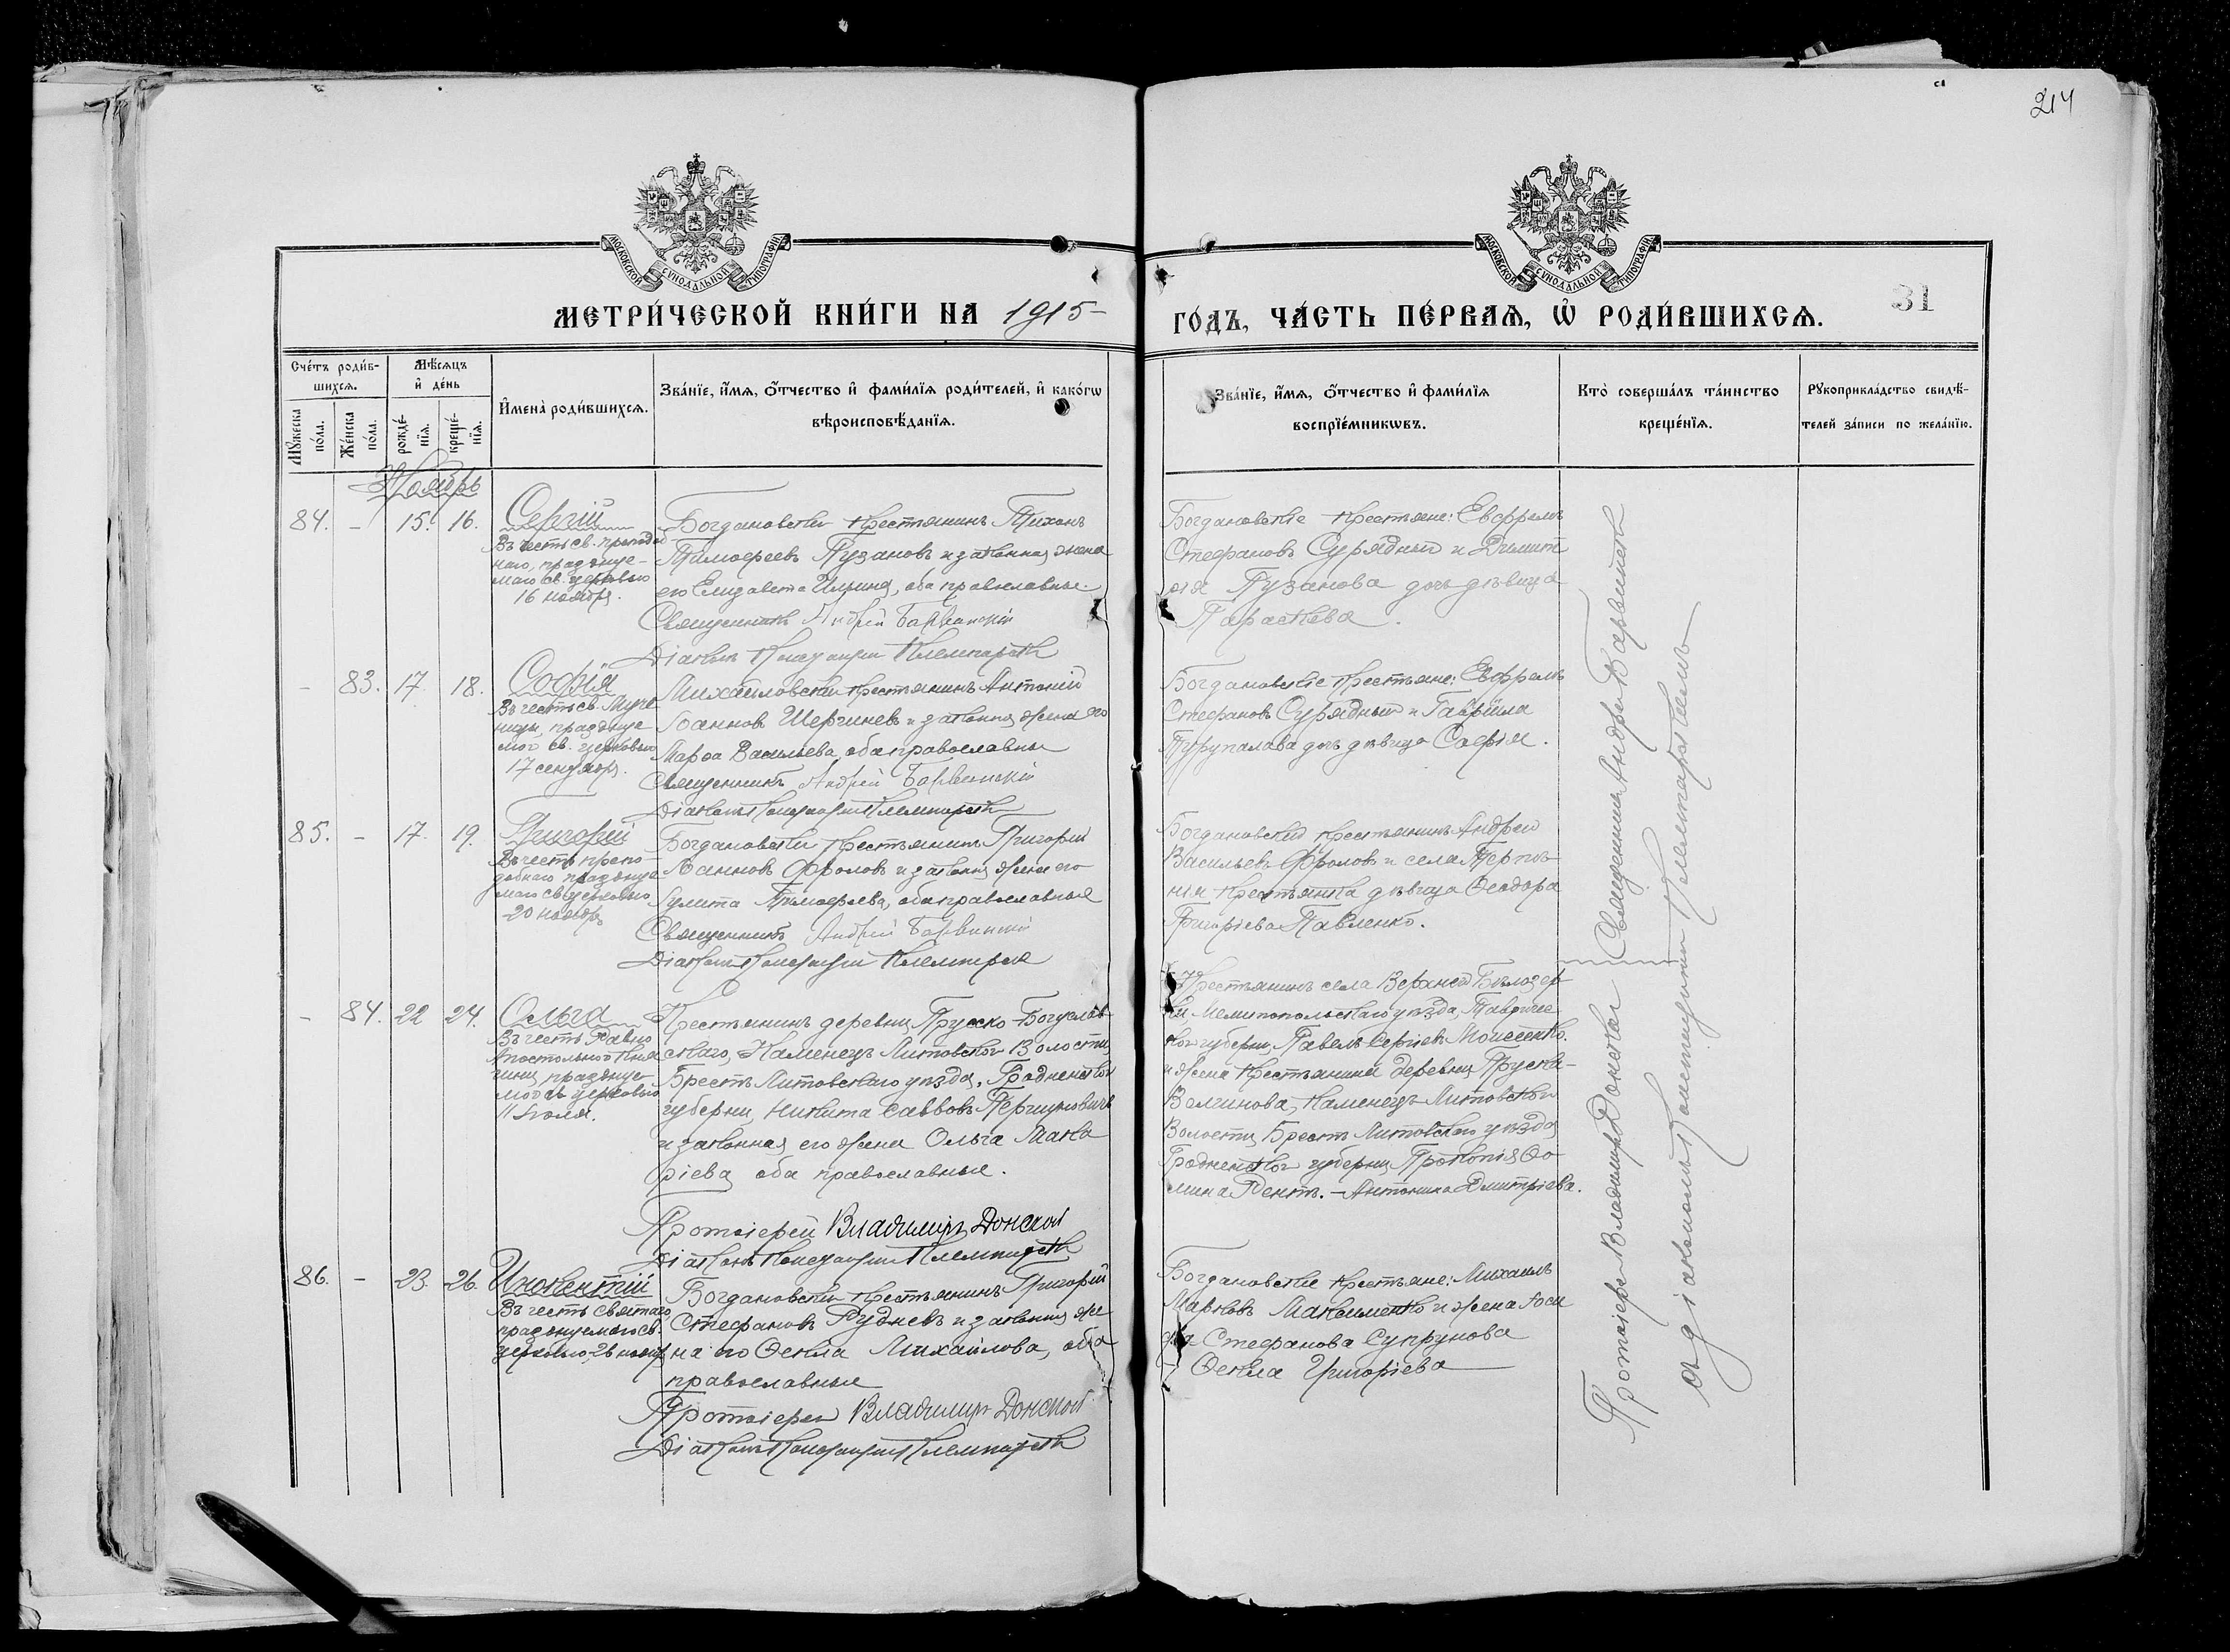 214
МОСКОВСКОЙ СУНОДАЛЬНОЙ ТИПОГРАФІИ
МОСКОВСКОЙ СУНОДАЛЬНОЙ ТИПОГРАФІИ
МЕТРИ́ЧЕСКОЙ КНИ́ГИ НА 1915
ГО́ДЪ, ЧА́СТЬ ПЕ́РВАЯ, Ѡ РОДИ́ВШИХСЯ.
31
Сче́тъ роди́в-
шихся.
Мѣ́сяцъ
и де́нь
Мꙋжеска по́ла.
Же́нска по́ла.
рожде́-нїя.
креще́-нїя.
Имена̀ роди́вшихся.
Зва́нїе, и́мя, ѻ́тчество и фами́лїя роди́телей, и како́гѡ
вѣроисповѣ́данїя.
Зва́нїе, и́мя, ѻ́тчество и фами́лїя
воспрїе́мникѡвъ.
Кто̀ соверша́лъ та́инство
креще́нїя.
Рꙋкоприкла́дство свидѣ́-
телей за́писи по жела́нїю.
Ноябрь
84. – 15. 16. Сергій
Въ честь св. преподоб
наго, празднуе-
маго св. церковью
16 ноября.
Богдановскій крестьянинъ Тихонъ
Тимофеевъ Пузановъ и законная жена
его Елизавета Ильина, оба православные.
Священникъ Андрей Барвинскій
Діаконъ Клемпарскій
Богдановскіе крестьяне: Евфремъ
Стефановъ Сурядный и Димит
рія Пузанова дочь дѣвица
Параскева.
– 83. 17. 18. Софія
Въ честь св. Муче
ницы, празднуе
мой св. церковью
17 сентября.
Михайловскій крестьянинъ Антоній
Іоанновъ Шергиневъ и законная жена его
Марфа Васильева, оба православные
Священникъ Андрей Барвинскій
Діаконъ Клемпарскій
Богдановскіе крестьяне: Евфремъ
Стефановъ Сурядный и Гавріила
дочь дѣвица Софія.
85. – 17. 19. Григорій
Въ честь препо-
добнаго празднуе
маго св. церковью
20 ноября
Богдановскій крестьянинъ Григорій
Іоанновъ Фроловъ и законная жена его
Іулита Тимофеева, оба православные
Священникъ Андрей Барвинскій
Діаконъ Клемпарскій
Богдановскій крестьянинъ Андрей
Васильевъ Фроловъ и села Терпѣ-
нія крестьянка дѣвица Ѳеодора
Григоріева Павленко.
– 84. 22 24. Ольга
Въ честь Равно
Апостольной Кня
гини, празднуе
мой св. церковью
11 Іюля.
Крестьянинъ деревни Пруско-Богуслав
скаго, Каменецъ Литовской Волости,
Брестъ Литовскаго уѣзда, Гродненской
губерніи, Никита Саввовъ
и законная его жена Ольга Мака
ріева оба православные.
Протоіерей Владимиръ Донской
Діаконъ Клемпарскій
Крестьянинъ села Верхней Бѣлозер
ки Мелитопольскаго уѣзда, Тавричес
кой губерніи, Павелъ Сергіевъ Моисеенко.
и жена крестьянина деревни Пруска-
Волчинова, Каменецъ Литовской
Волости, Брестъ Литовскаго уѣзда
Гродненской губерніи Прокопія Ѳо
мина – Антонина Димитріева.
86. – 23. 26. Инокентій
Въ честь святаго
празднуемаго св.
церковью, 26 нояб.
Богдановскій крестьянинъ Григорій
Стефановъ Рудневъ и законная же
на его Ѳекла Михайлова, оба
православные
Протоіерей Владимиръ Донской
Діаконъ Клемпарскій
Богдановскіе крестьяне: Михаилъ
Марковъ Максименко и жена Іоси
фа Стефанова Супрунова
Ѳекла Григоріева
Протоіерей Владимиръ Донской Священникъ Андрей Барвинскій
съ діакономъ Константиномъ Клемпарскимъ